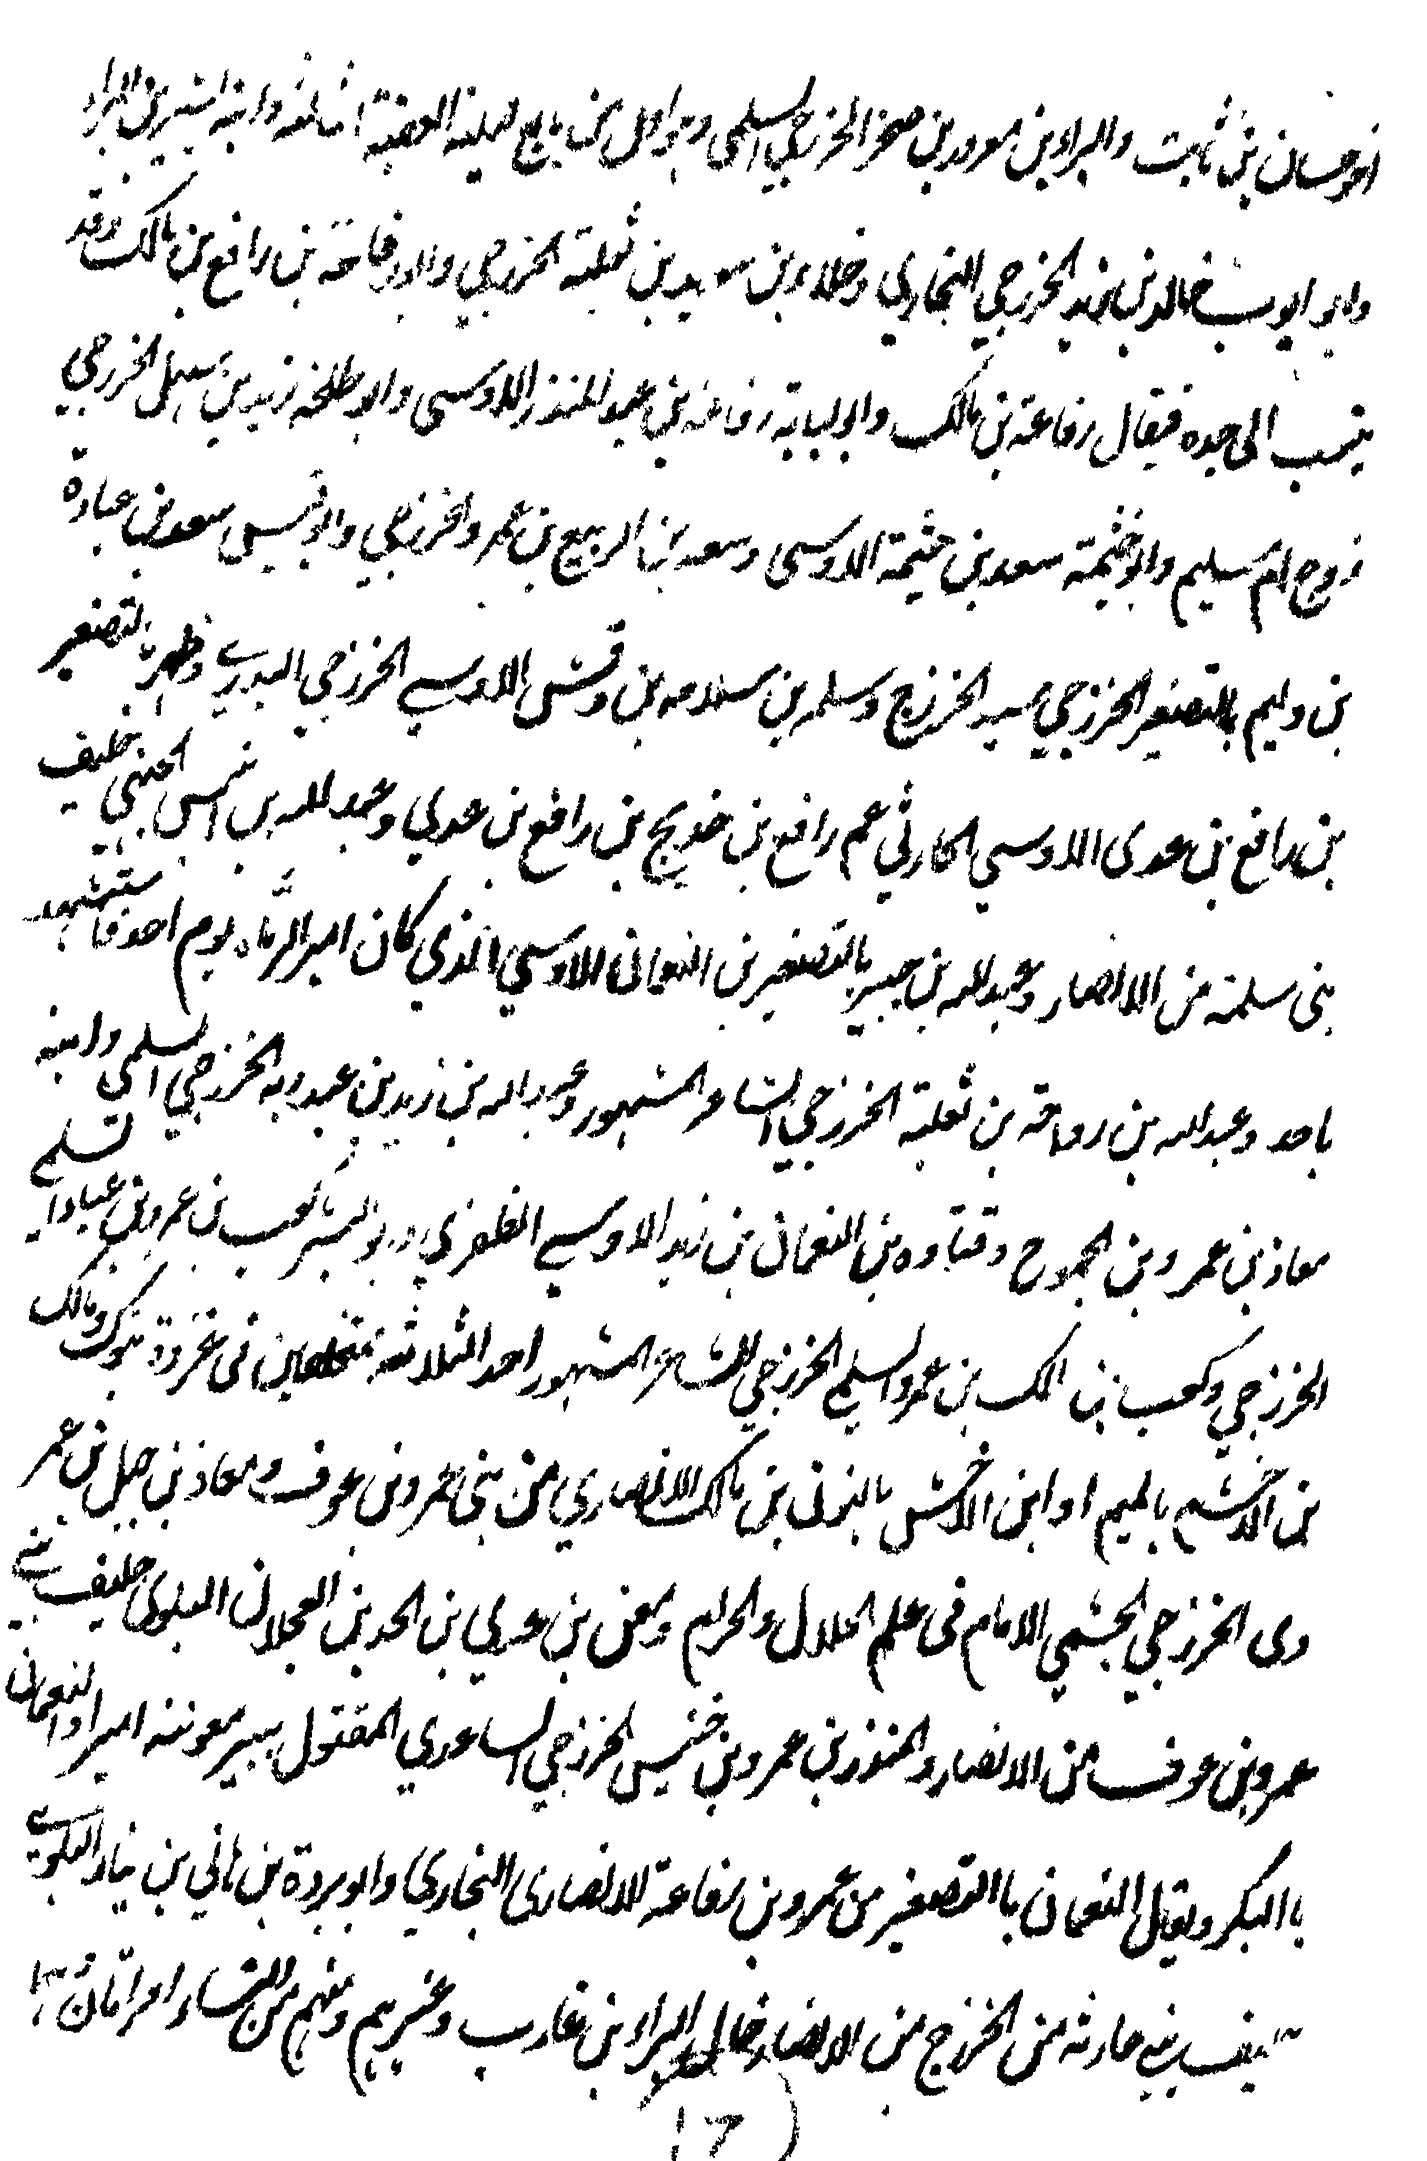 اخو حسان بن ثابت والبراء بن معرور بن صخر الخزرجي السلمي وهو اول من بايع ليلة العقبة الثالثة وابنه بشر بن البراء
وابو ايوب خالد بن زيد الخزرجي النجاري وخلاد بن سويد بن ثعلبة الخزرجي وابو رفاعة بن رافع بن مالك وقد
ينسب الى جده فيقال رفاعة بن مالك وابو لبابة رفاعة بن عبد المنذر الاوسي وابو طلحة زيد بن سهل الخزرجي
زوج ام سليم وابو خيثمة سعد بن خيثمة الاوسي وسعد بن الربيع بن عمرو الخزرجي وابو قيس سعد بن عبادة
بن دليم بالتصغير الخزرجي سيد الخزرج وسلمة بن سلامه بن وقش الاوسي الخزرجي البدري وظهير بالتصغير
بن رافع بن عدى الاوسي الحارثي عم رافع بن خديج بن رافع بن عدي وعبد الله بن انيس الجهني حليف
بنى سلمة من الانصار وعبد الله بن جبير بالتصغير بن النعمان الاوسي الذي كان امير الرماه يوم احد فاستشهد
باحد وعبد الله بن رواحة بن ثعلبة الخزرجي الشاعر المشهور وعبد الله بن زيد بن عبد ربه الخزرجي السلمي وابنه
معاذ بن عمرو بن الجموح وقتاده بن النعمان بن زيد الاوسي الظفري وابو اليسر كعب بن عمرو بن عباد السلمي
الخزرجي وكعب بن مالك بن عمرو السلمي الخزرجي الشاعر المشهور احد الثلاثة المتخلفين فى غزوة تبوك ومالك
بن الدخشم بالميم او ابن الدخشن بالنون بن مالك الانصاري من بنى عمرو بن عوف ومعاذ بن جبل بن عمر
وى الخزرجي الجشمي الامام فى علم الحلال والحرام ومعن بن عدي بن الجد بن العجلان البلوى حليف بني
عمرو بن عوف من الانصار والمنذر بن عمرو بن خنيس الخزرجي الساعدي المقتول ببير معونه اميرا والنعمان
با البكر ويقال النعمان با التصغير بن عمرو بن رفاعة الانصارى النجاري وابو بردة بن هاني بن نيار البلوي
حليف بني حارثة من الخزرج من الانصار خال البراء بن عازب وغيرهم ومنهم من النساء امرأتان